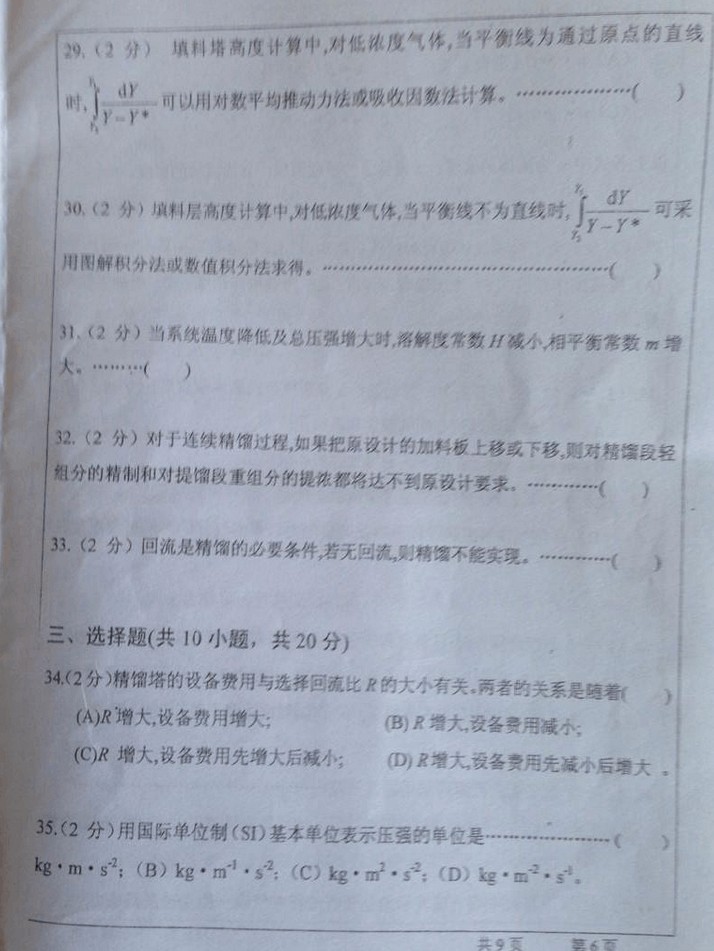 29.(2 分) 填料塔高度计算中,对低浓度气体,当平衡线为通过原点的直线
时,∫_{Y₂}^{Y₁} dY/(Y-Y*) 可以用对数平均推动力法或吸收因数法计算。………………( )
30.(2 分)填料层高度计算中,对低浓度气体,当平衡线不为直线时,∫_{Y₂}^{Y₁} dY/(Y-Y*) 可采
用图解积分法或数值积分法求得。………………………………………( )
31.(2 分)当系统温度降低及总压强增大时,溶解度常数 H 减小,相平衡常数 m 增
大。………( )
32.(2 分)对于连续精馏过程,如果把原设计的加料板上移或下移,则对精馏段轻
组分的精制和对提馏段重组分的提浓都将达不到原设计要求。…………( )
33.(2 分)回流是精馏的必要条件,若无回流,则精馏不能实现。…………( )
三、选择题(共 10 小题，共 20 分)
34.(2 分)精馏塔的设备费用与选择回流比 R 的大小有关。两者的关系是随着( )
(A)R 增大,设备费用增大; (B) R 增大,设备费用减小;
(C)R 增大,设备费用先增大后减小; (D) R 增大,设备费用先减小后增大 。
35.(2 分)用国际单位制(SI)基本单位表示压强的单位是…………………( )
kg·m·s⁻²; (B) kg·m⁻¹·s⁻²; (C) kg·m²·s⁻²; (D) kg·m⁻²·s⁻¹。
共 9 页 第 6 页